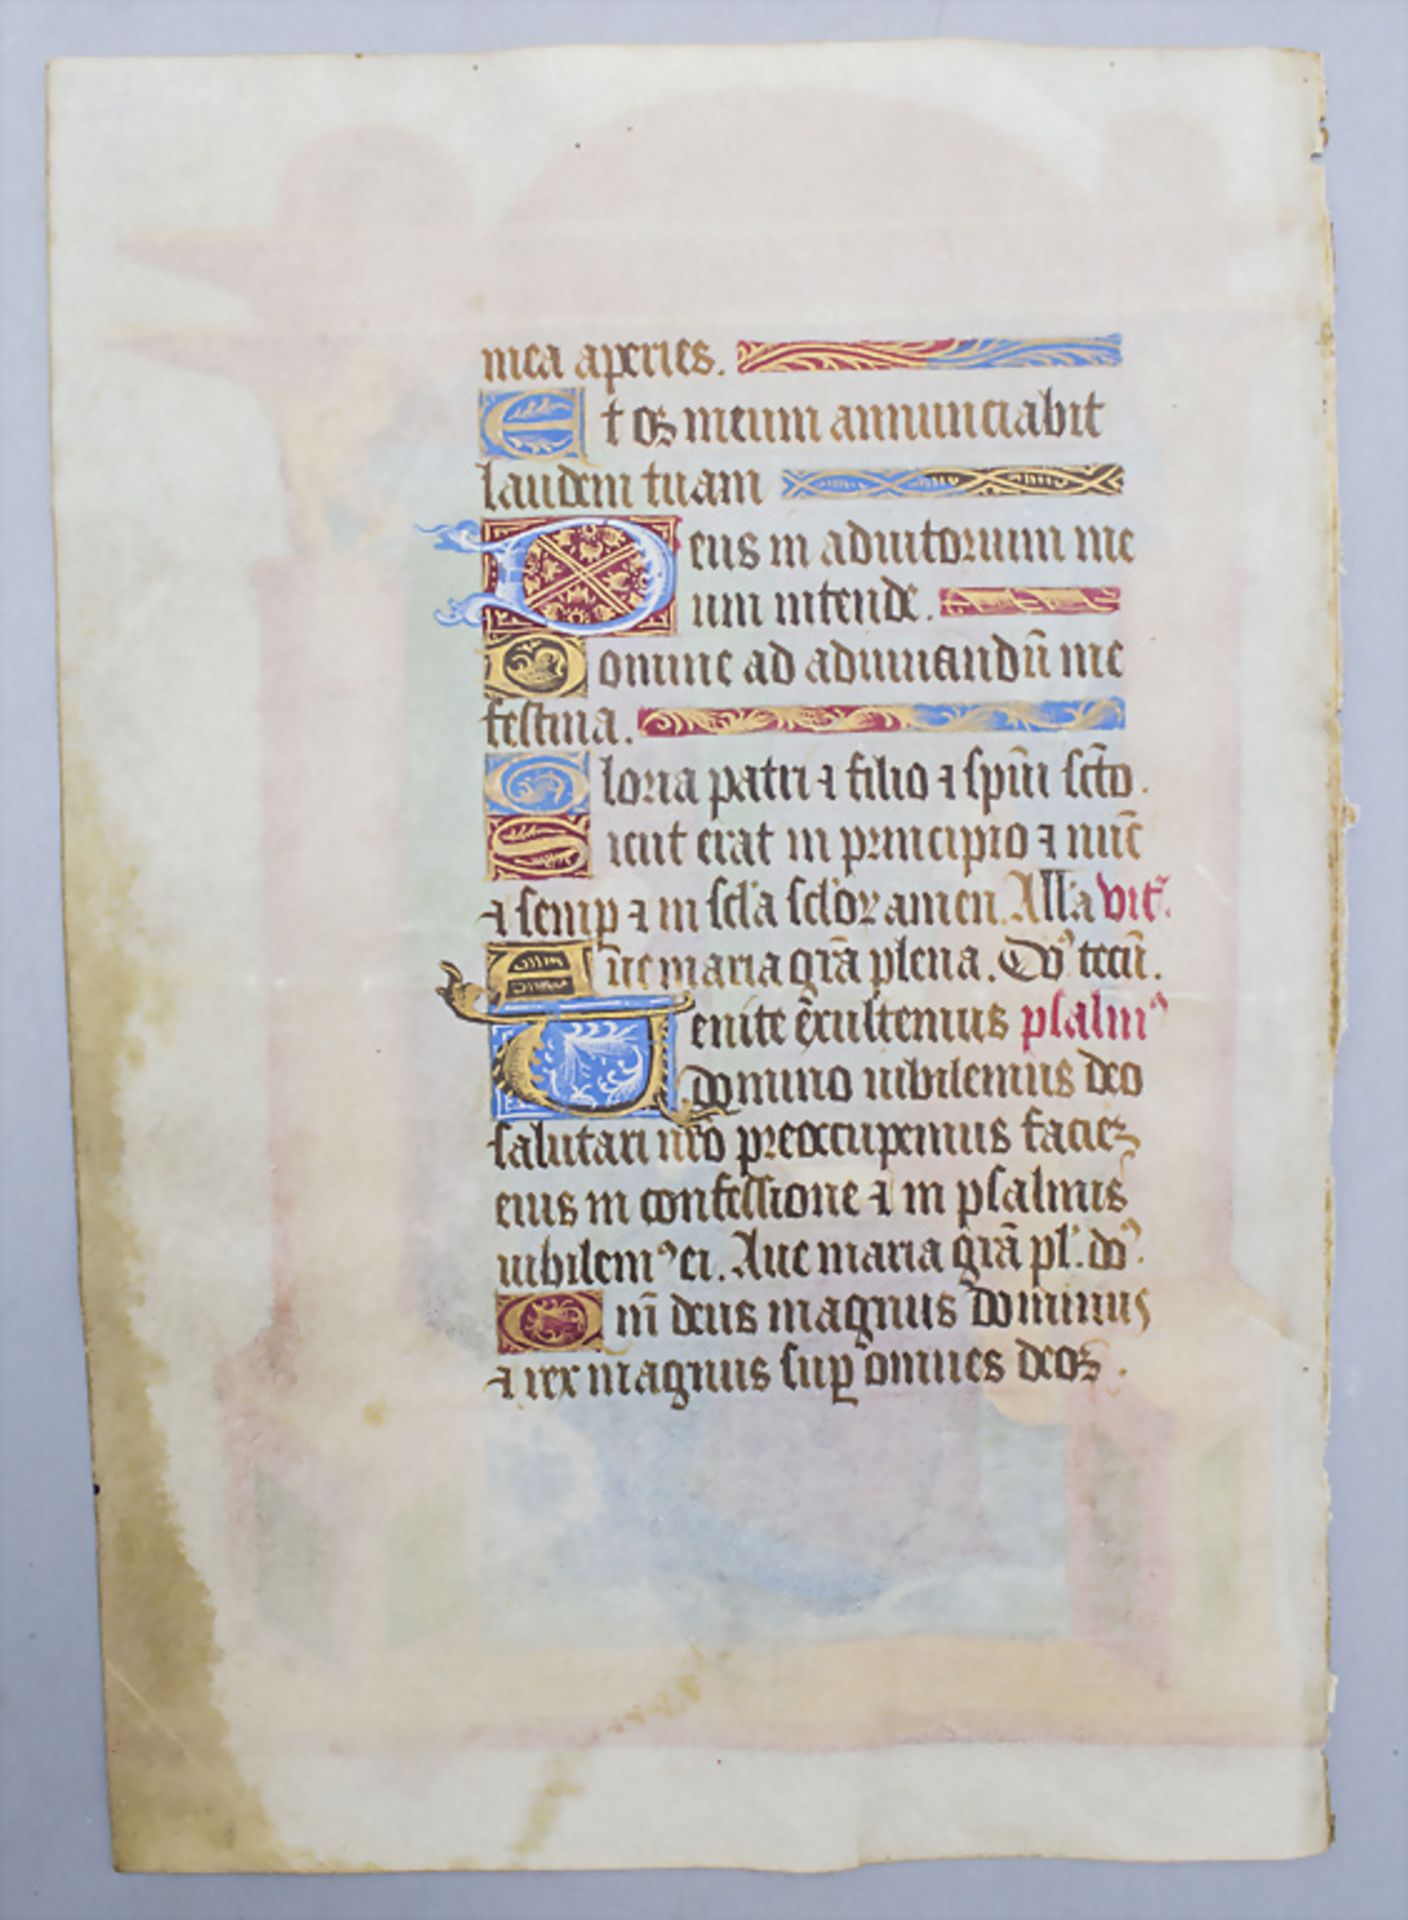 mea aperies.
Et os meum annunciabit
laudem tuam
Deus in adiutorium me
um intende.
Domine ad adiuuandū me
festina.
Gloria patri ⁊ filio ⁊ spūi scto.
Sicut erat in principio ⁊ nūc
⁊ semꝑ ⁊ in scl'a scl'oꝝ amen. All'a vit̃.
Aue maria grā plena. Doꝰ tecū.
Venite exultemus psalmꝰ
domino iubilemus deo
salutari nr̄o preoccupemus faciē
eius in confessione ⁊ in psalmis
iubilemꝰ ei. Aue maria grā pl'. doꝰ.
Qm̄ deus magnus dominus
⁊ rex magnus suꝑ omnes deos.